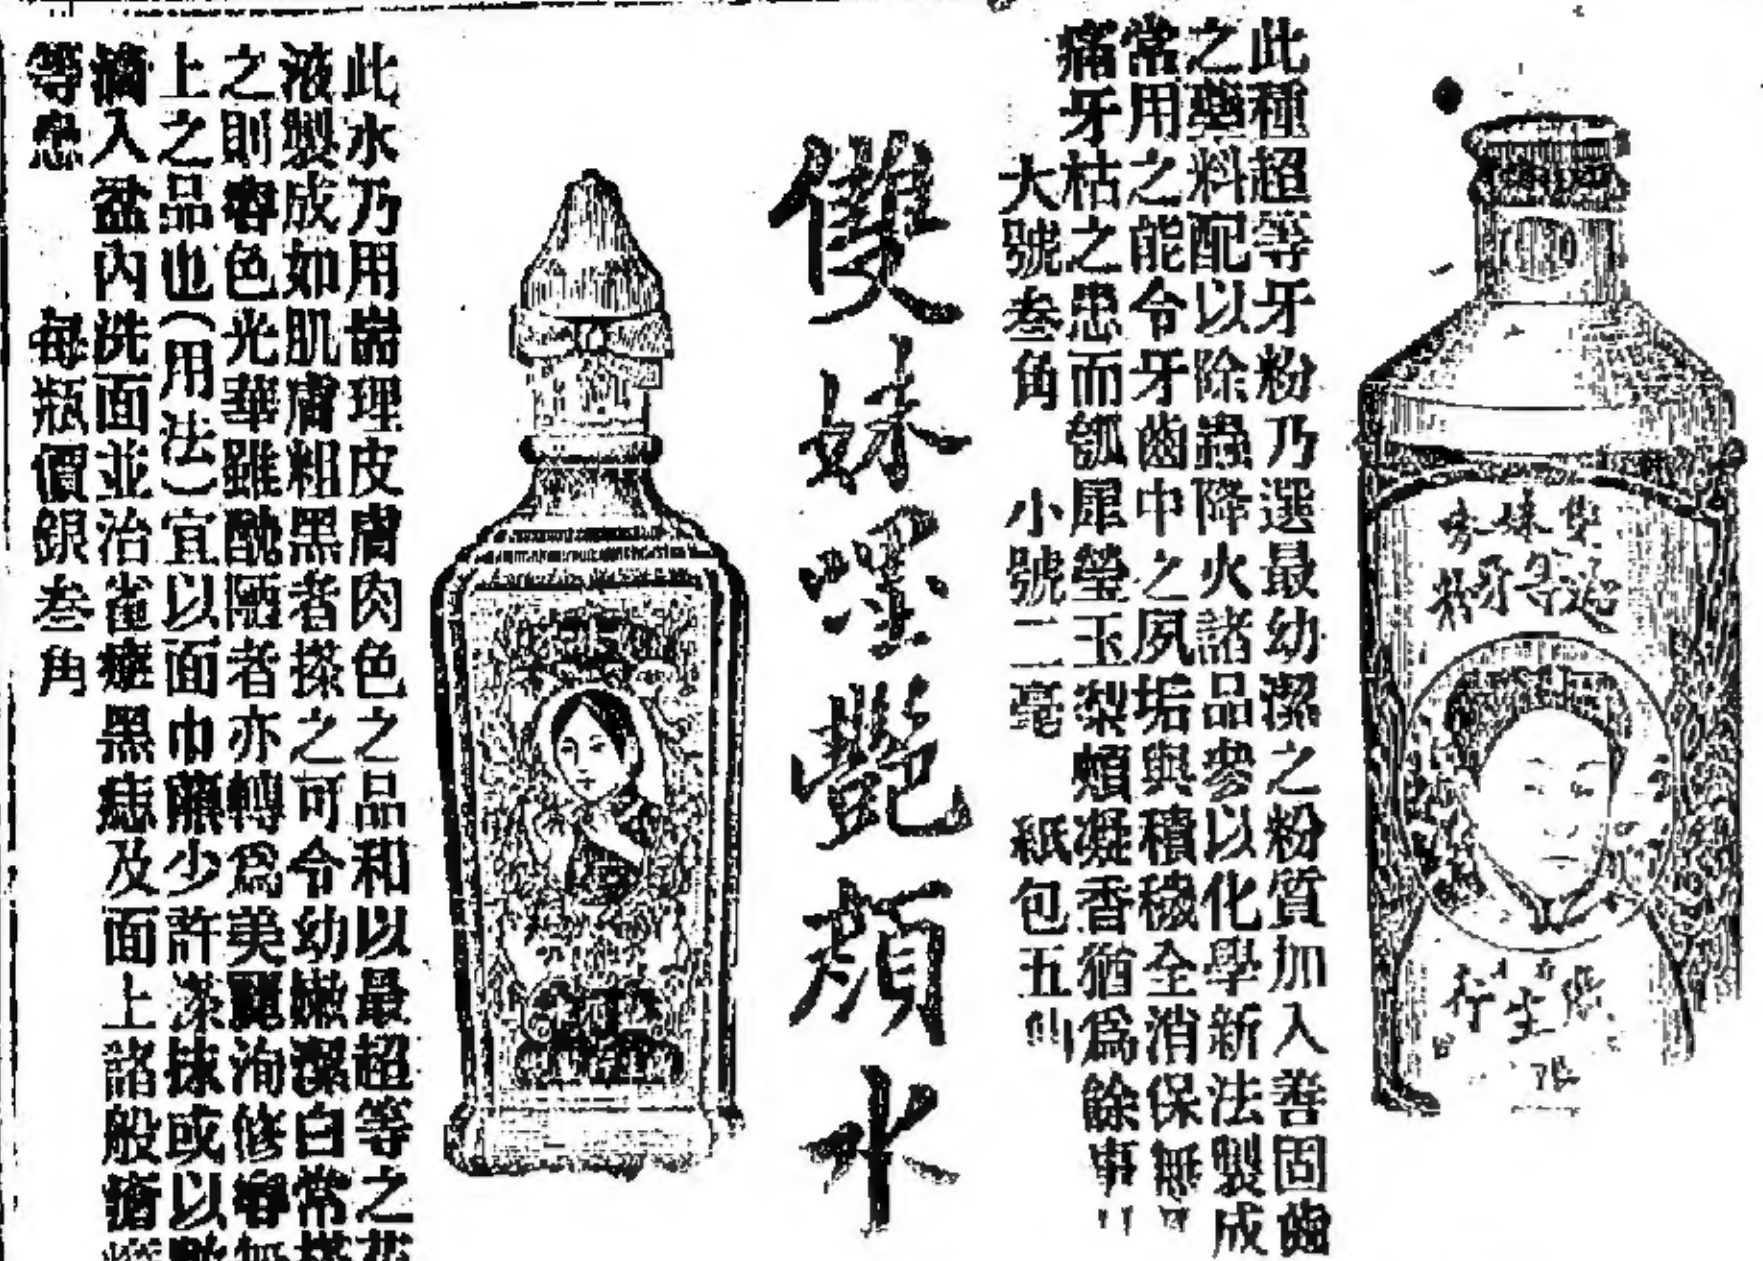 雙妹
超等牙粉
廣生行
此種超等牙粉乃選最幼潔之粉質加入善固齒
之藥料配以除蟲降火諸品參以化學新法製成
常用之能令牙齒中之夙垢與積穢全消保無
痛牙枯之患而瓠犀瑩玉梨頰凝香猶爲餘事
大號叁角 小號二毫 紙包五仙
雙妹嚜艷顏水
此水乃用崙理皮膚肉色之品和以最超等之花
液製成如肌膚粗黑者搽之可令幼嫩潔白常搽
之則容色光華雖醜陋者亦轉爲美麗洵修容無
上之品也(用法)宜以面巾蘸少許搽抹或以數
滴入盆內洗面並治雀癍黑痣及面上諸般瘡
等患 每瓶價銀叁角